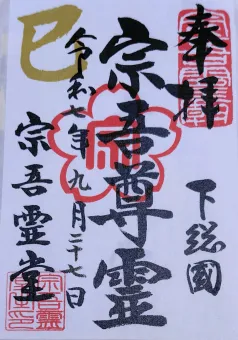 奉拝
下総國
宗吾尊霊
令和七年九月二十七日
巳
宗吾霊堂